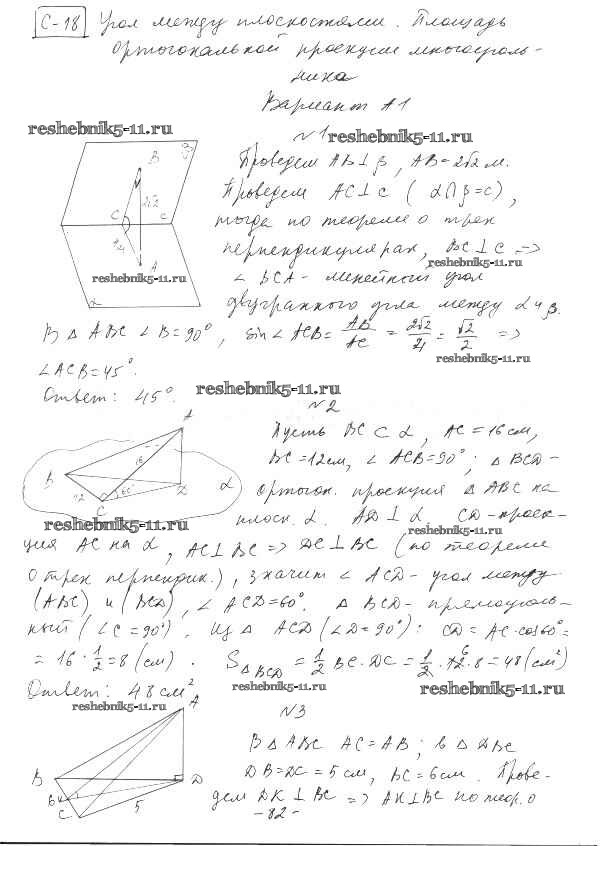 С-18 Угол между плоскостями. Площадь
ортогональной проекции многоуголь-
ника
Вариант А1
reshebnik5-11.ru
№1 reshebnik5-11.ru
Проведем AB⊥β, AB=2√2 м.
Проведем AC⊥c (α∩β=c),
тогда по теореме о трех
перпендикулярах, BC⊥c =>
reshebnik5-11.ru
∠BCA - линейный угол
двугранного угла между α и β.
B
β
2√2
C
c
4
A
reshebnik5-11.ru
α
В △ABC ∠B=90°, sin∠ACB= AB/AC = 2√2/4 = √2/2 =>
reshebnik5-11.ru
∠ACB=45°.
Ответ: 45°.
reshebnik5-11.ru
№2
Пусть BC⊂α, AC=16см,
BC=12см, ∠ACB=90°; △BCD-
ортогон. проекция △ABC на
плоск. α. AD⊥α CD-проек-
reshebnik5-11.ru
A
16
B
12
60°
C
D
α
reshebnik5-11.ru
ция AC на α, AC⊥BC => DC⊥BC (по теореме
о трех перпендик.), значит ∠ACD- угол между
(ABC) и (BCD), ∠ACD=60°. △BCD- прямоуголь-
ный (∠C=90°). Из △ACD (∠D=90°): CD=AC·cos60°=
=16·1/2=8(см). S△BCD = 1/2 BC·DC = 1/2·12·8=48(см²)
6
Ответ: 48см²
reshebnik5-11.ru
reshebnik5-11.ru
reshebnik5-11.ru
№3
В △ABC AC=AB; в △DBC
DB=DC=5см, BC=6см. Прове-
дем DK⊥BC => AK⊥BC по теор. о
A
B
6
C
5
D
reshebnik5-11.ru
-82-